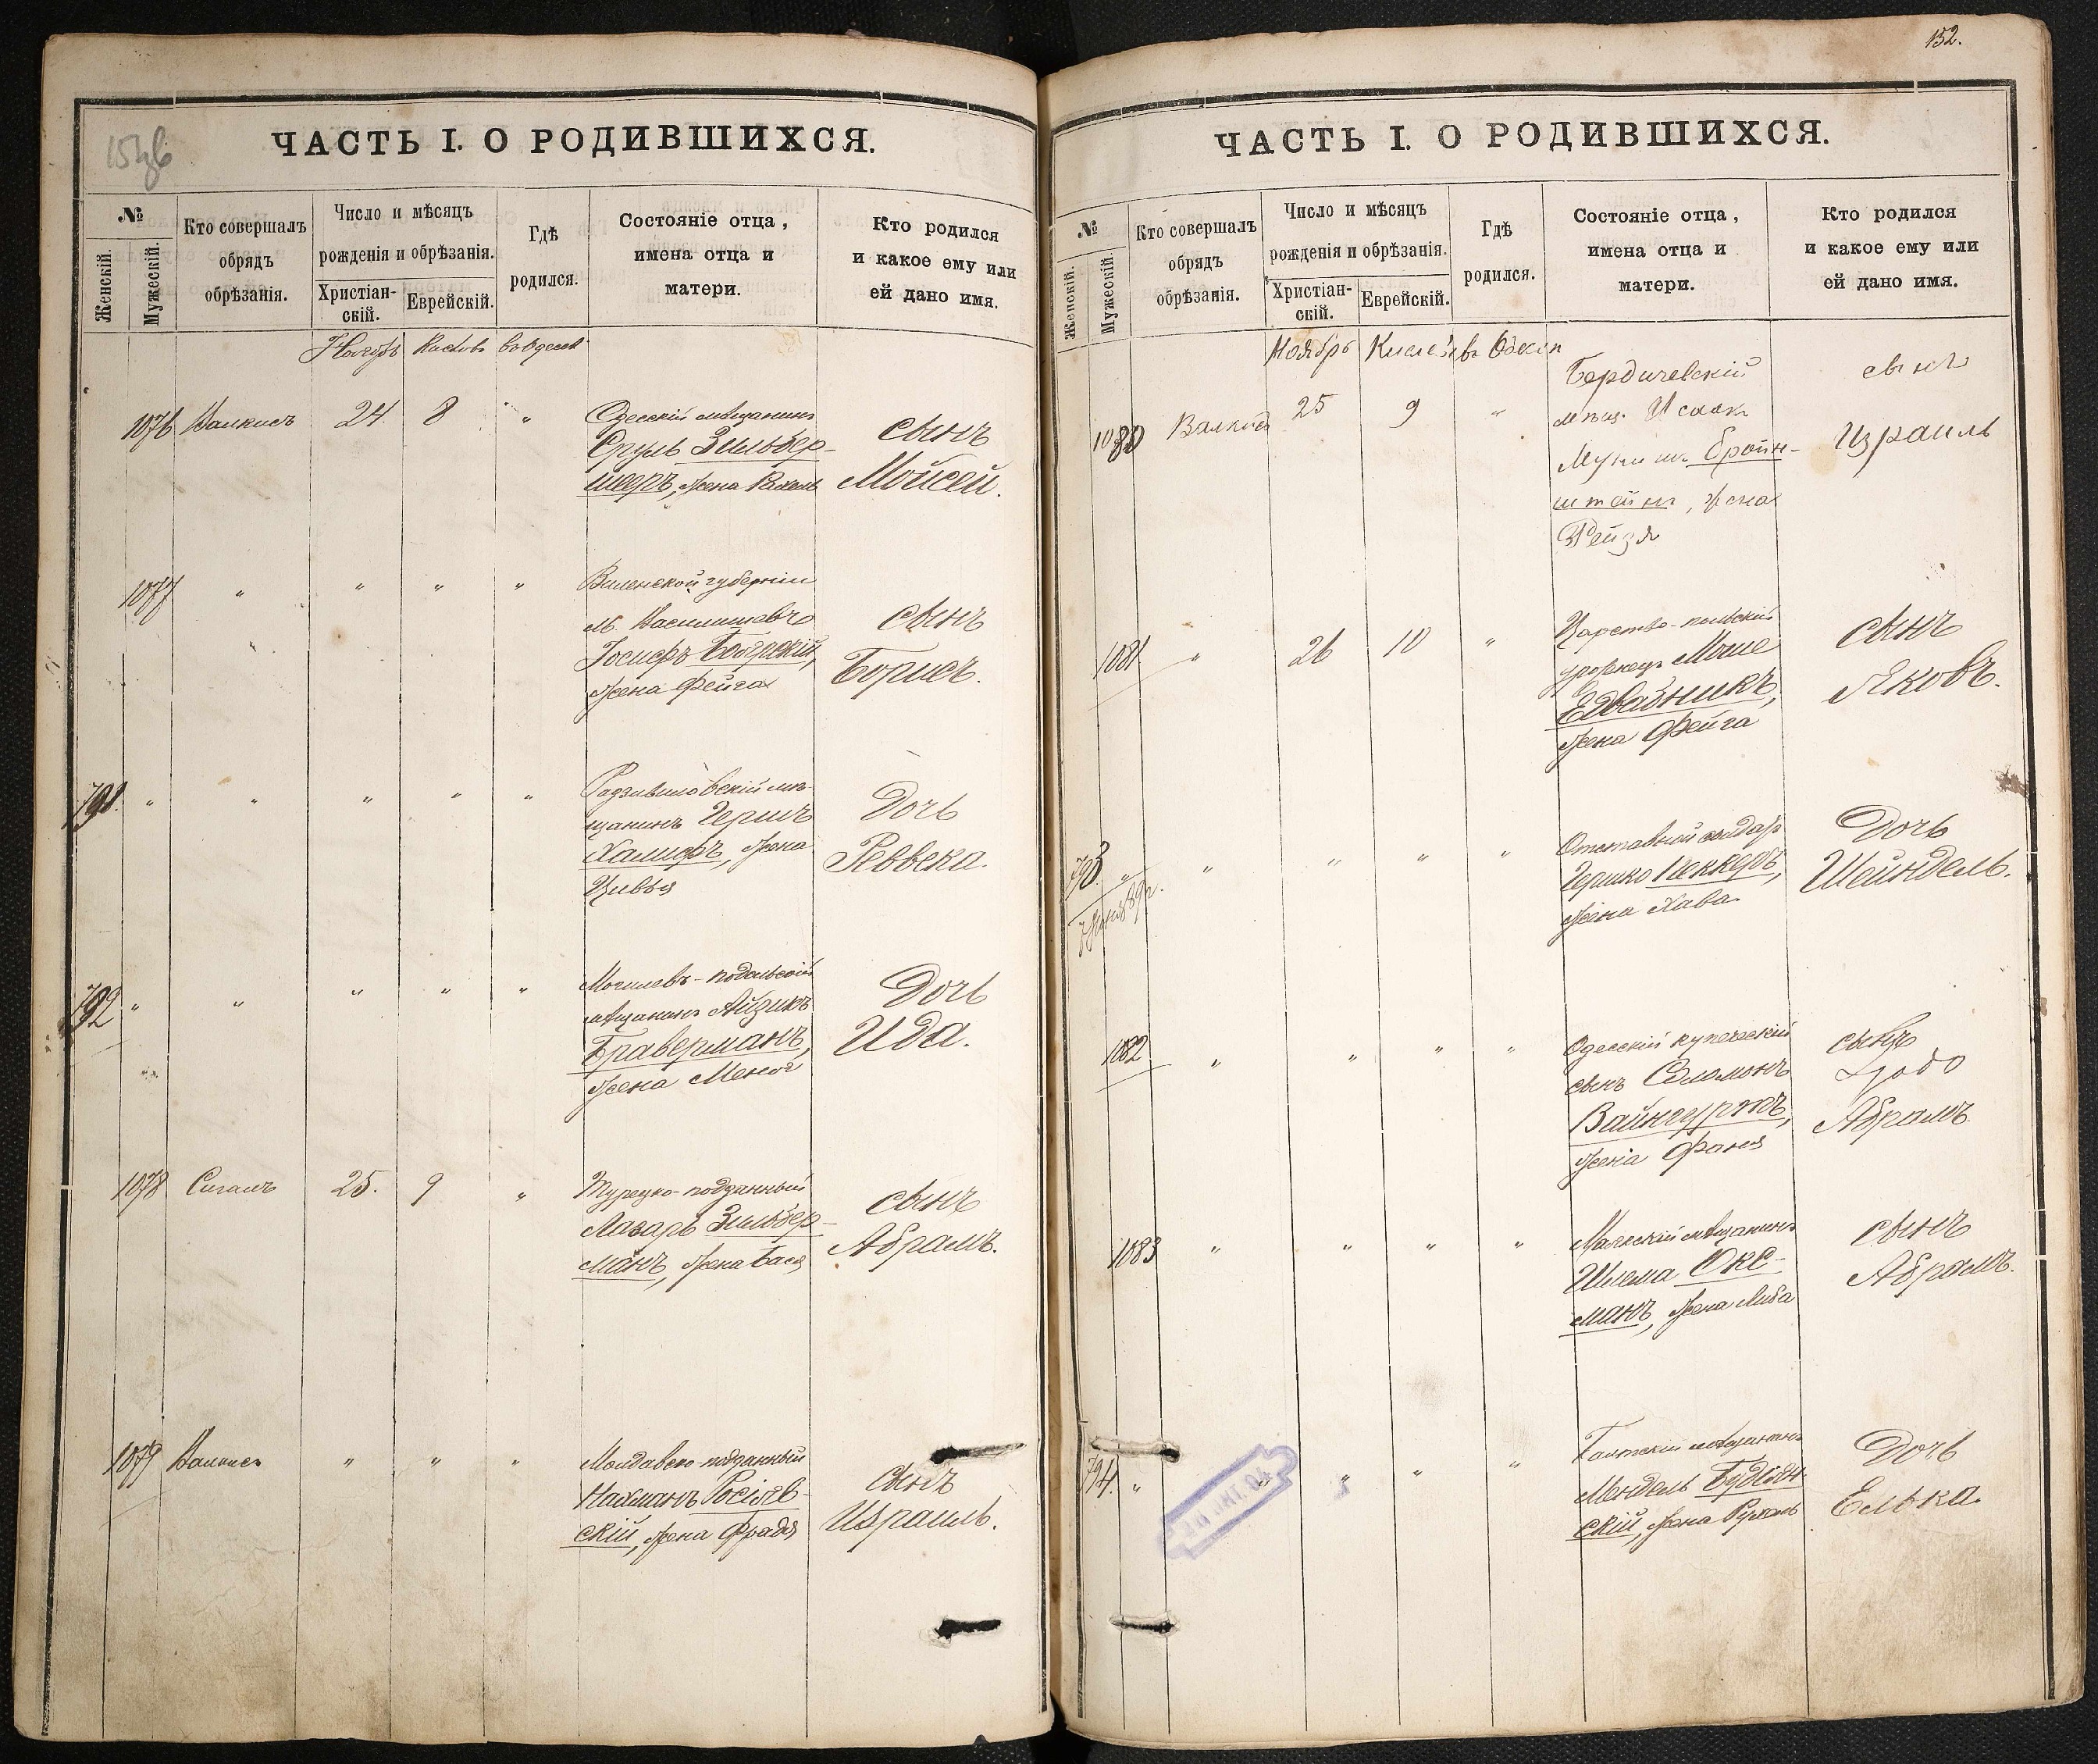 152.
ЧАСТЬ I. О РОДИВШИХСЯ.
№
Женскій.
Мужескій.
Кто совершалъ
обрядъ
обрѣзанія.
Число и мѣсяцъ
рожденія и обрѣзанія.
Христіан-
скій.
Еврейскій.
Гдѣ
родился.
Состояніе отца,
имена отца и
матери.
Кто родился
и какое ему или
ей дано имя.
Ноябрь Кислевъ въ Одессѣ
1076 24 8 " Одесскій мѣщанинъ
Сруль Зильбер-
шеръ, жена Рахель
сынъ
Мойсей.
1077 " " " " Виленской губерніи
м. Василишевъ
Іосифъ
жена Фейга
сынъ
Борисъ.
791. " " " " " Радзивиловскій мѣ-
щанинъ Гершъ
Халифъ, жена
Цивья
Дочь
Реввека.
792 " " " " " Могилевъ-подольскій
мѣщанинъ Айзикъ
Браверманъ,
жена
Дочь
Ида.
1078 Сигалъ 25. 9 " Турецко-подданный
Лазарь Зильбер-
манъ, жена Бася
сынъ
Абрамъ.
1079 " " " Молдавско-подданный
Нахманъ
скій, жена Фрадя
сынъ
Израиль.
ЧАСТЬ I. О РОДИВШИХСЯ.
№
Женскій.
Мужескій.
Кто совершалъ
обрядъ
обрѣзанія.
Число и мѣсяцъ
рожденія и обрѣзанія.
Христіан-
скій.
Еврейскій.
Гдѣ
родился.
Состояніе отца,
имена отца и
матери.
Кто родился
и какое ему или
ей дано имя.
Ноябрь Кислевъ
1080 25 9 " Бердичевскій
мѣщ. Исаакъ
Мунишъ Бройн-
штейнъ, жена
Рейзя
сынъ
Израиль
1081 " 26 10 " Царство-польскій
уроженецъ Моше
Едвабникъ,
жена Фейга
сынъ
Яковъ.
793. " " " " " Отставной солдатъ
Гершко Пеккеръ,
жена Хава
Дочь
Шейндель.
1082 " " " " Одесскій купеческій
сынъ Соломонъ
Вайнгуртъ,
жена Фаня
сынъ
Абрамъ
1083 " " " " Маякскій мѣщанинъ
Шлема Окс-
манъ, жена Либа
сынъ
Абрамъ.
794. " " " " мѣщанинъ
Мендель Будиян-
скій, жена Рухель
Дочь
Елька.